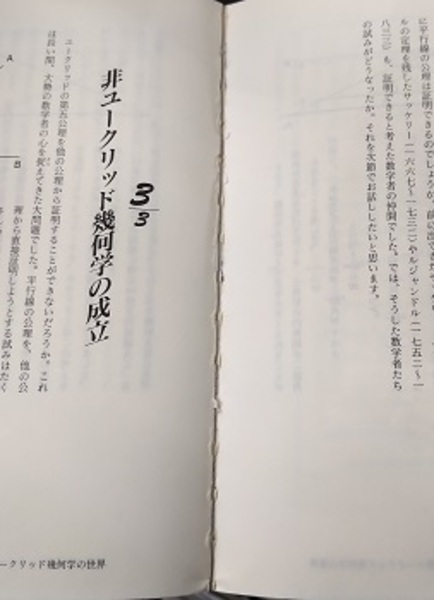 に平行線の公理は証明できるのでしょうか。前に出てきた
ルの定理を残したサッケリー(一六六七〜一七三三)やルジャンドル(一七五二〜一
八三三)も、証明できると考えた数学者の仲間でした。では、そうした数学者たち
の試みがどうなったか。それを次節でお話ししたいと思います。
3/3
非ユークリッド幾何学の成立
ユークリッドの第五公理を他の公理から証明することができないだろうか。これ
は長い間、大勢の数学者の心を捉えてきた大問題でした。平行線の公理を、他の公
理から直接証明しようとする試みはたく
A
B
ークリッド幾何学の世界